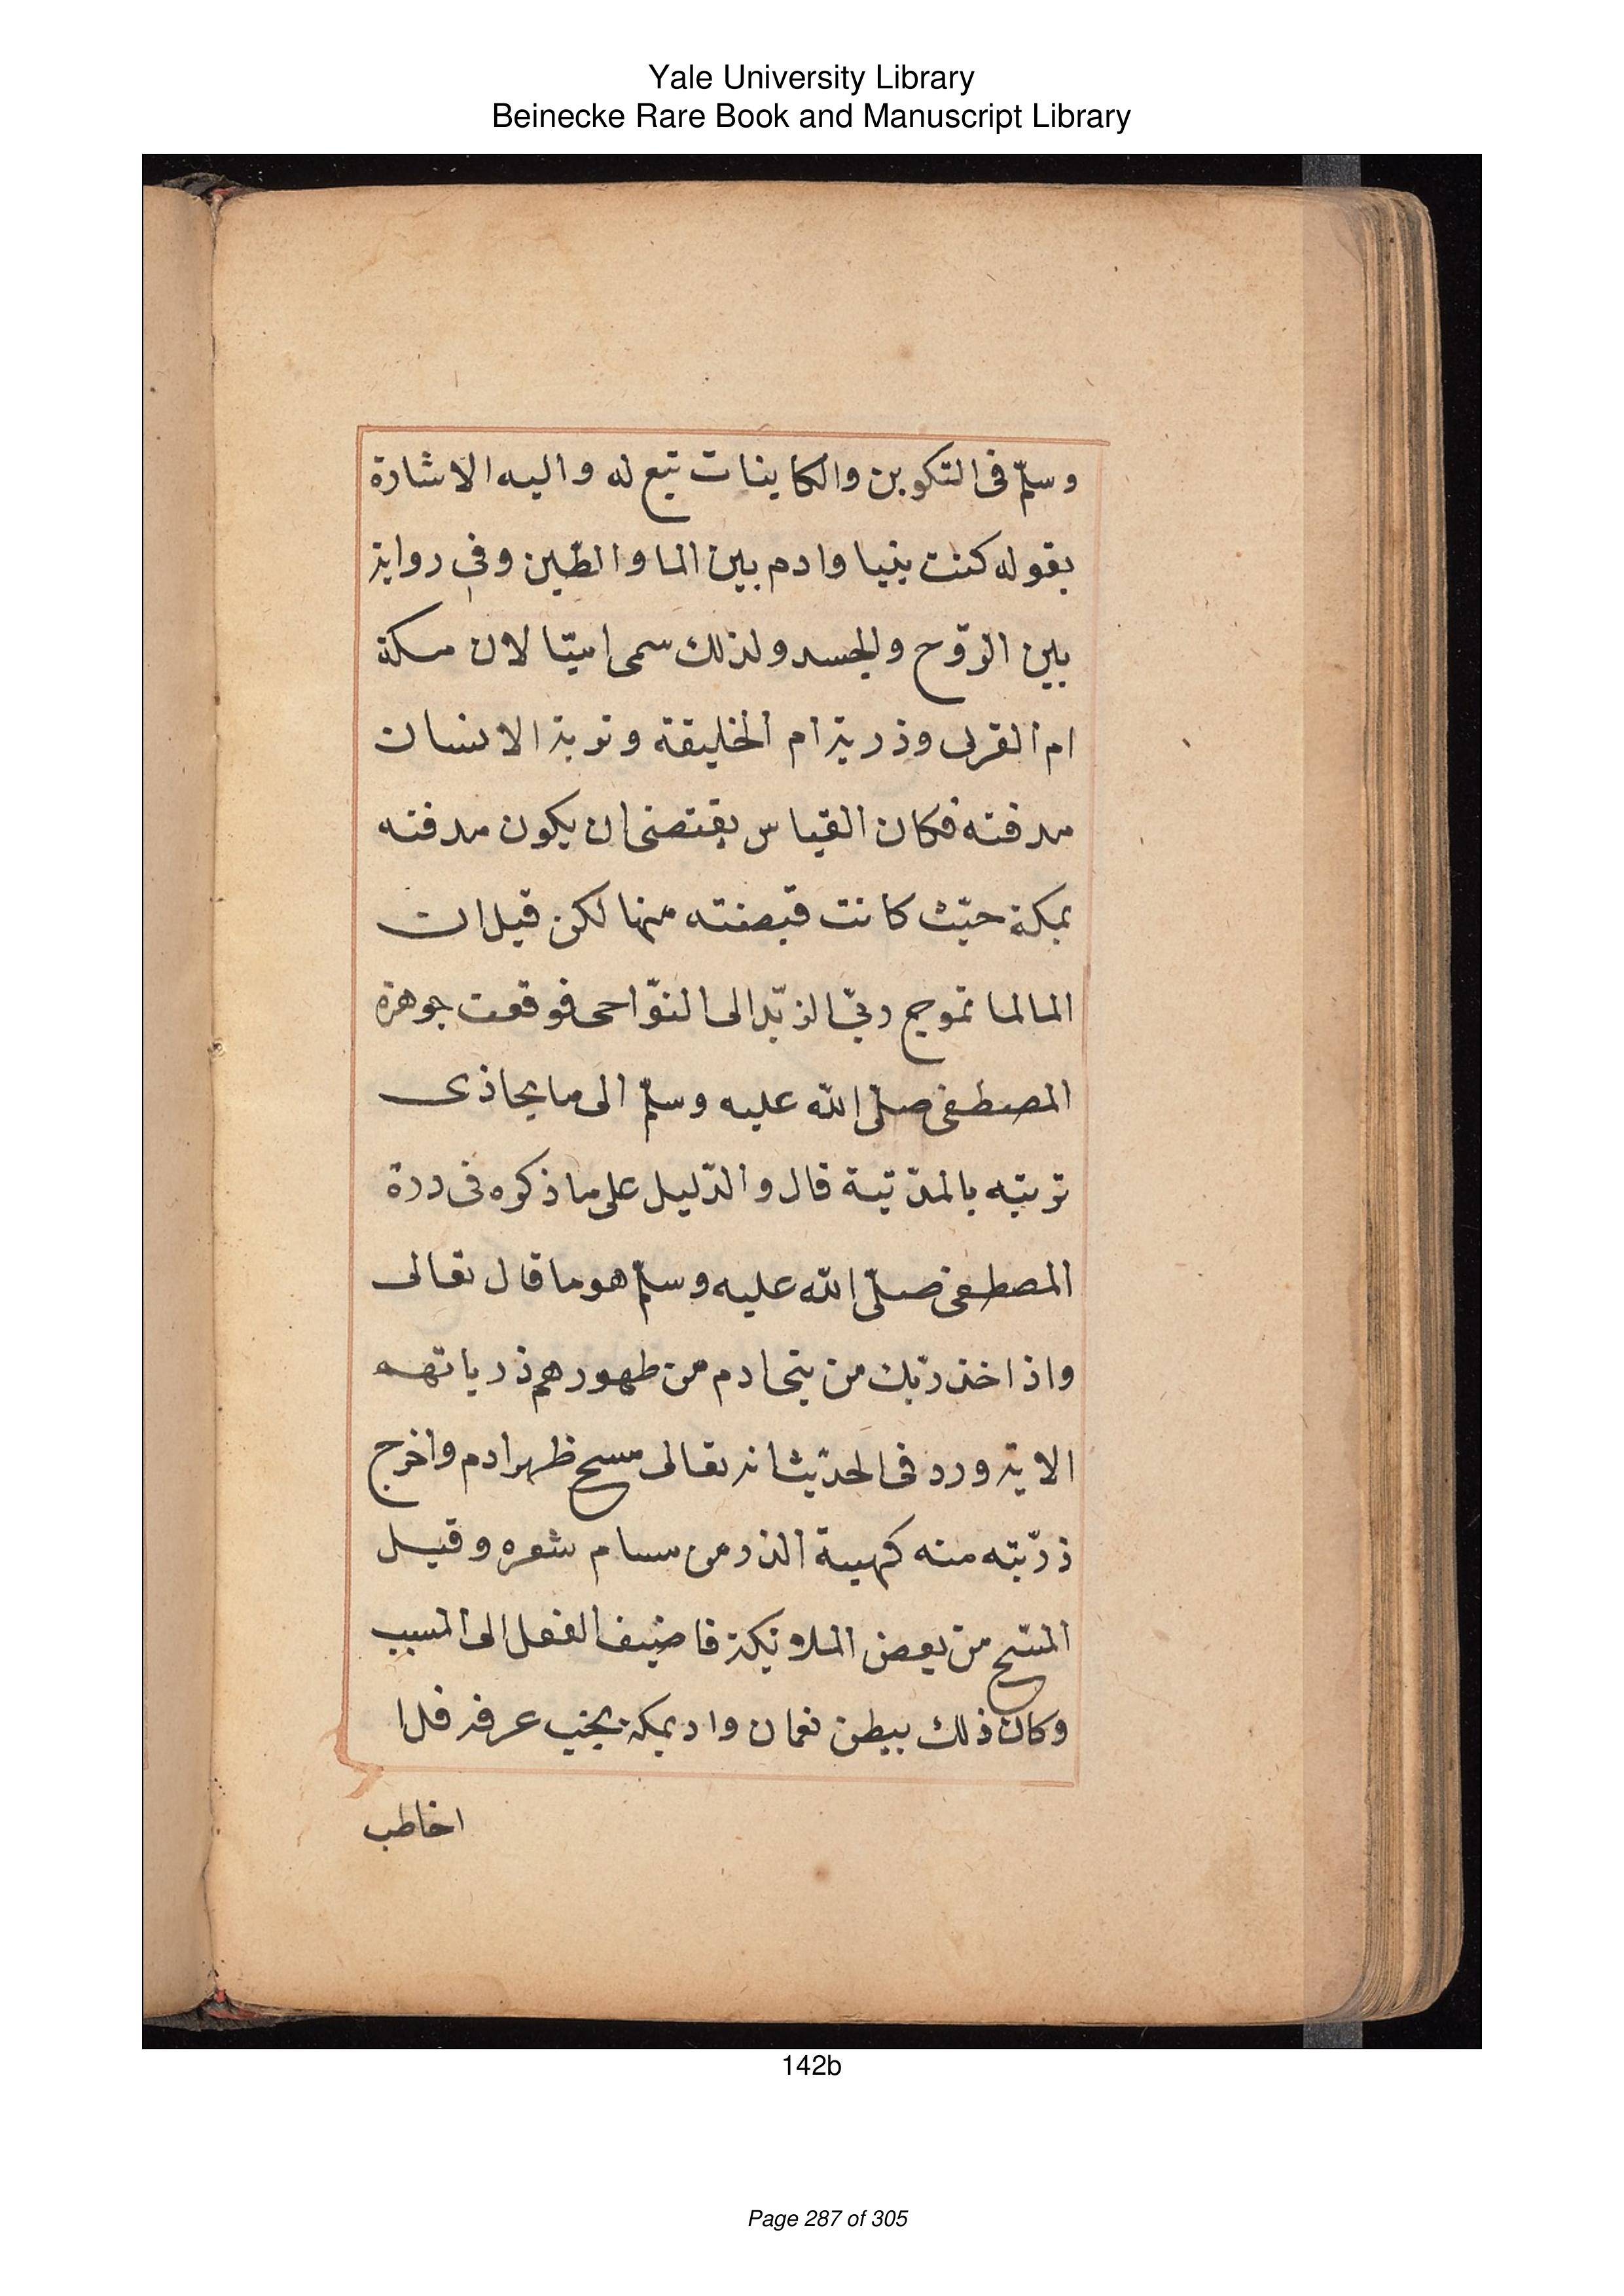 Yale University Library
Beinecke Rare Book and Manuscript Library
وسلّم فى التكوين والكاينات تبع له واليه الاشارة
بقوله كنت بنيا وادم بين الما والطّين وفي رواية
بين الرّوح والجسد ولذلك سمى اميّا لان مكة
ام القرى وذرية ام الخليقة وتوبة الانسان
مدفنه فكان القياس يقتضى ان يكون مدفنه
بمكة حيّث كانت قبضته منها لكن قيل ان
الما لما تموج رمّي الزبّد الى النوّاحى فوقعت جوهرة
المصطفى صلّى الله عليه وسلّم الى ما يحاذى
تربته بالمدّينة قال والدّليل على ما ذكره فى درة
المصطفى صلّى الله عليه وسلّم هو ما قال تعالى
واذ اخذ ربّك من بنى ادم من ظهورهم ذرياتهم
الاية ورد فى الحدّيث انه تعالى مسح ظهر ادم واخرج
ذرّيته منه كهيية الذر من مسام شعره وقيل
المسّح من بعض الملائيكة فاضيف الفعل الى المسبب
وكان ذلك ببطن نعمان واد بمكة بجنب عرفة فلا
اخاطب
142b
Page 287 of 305